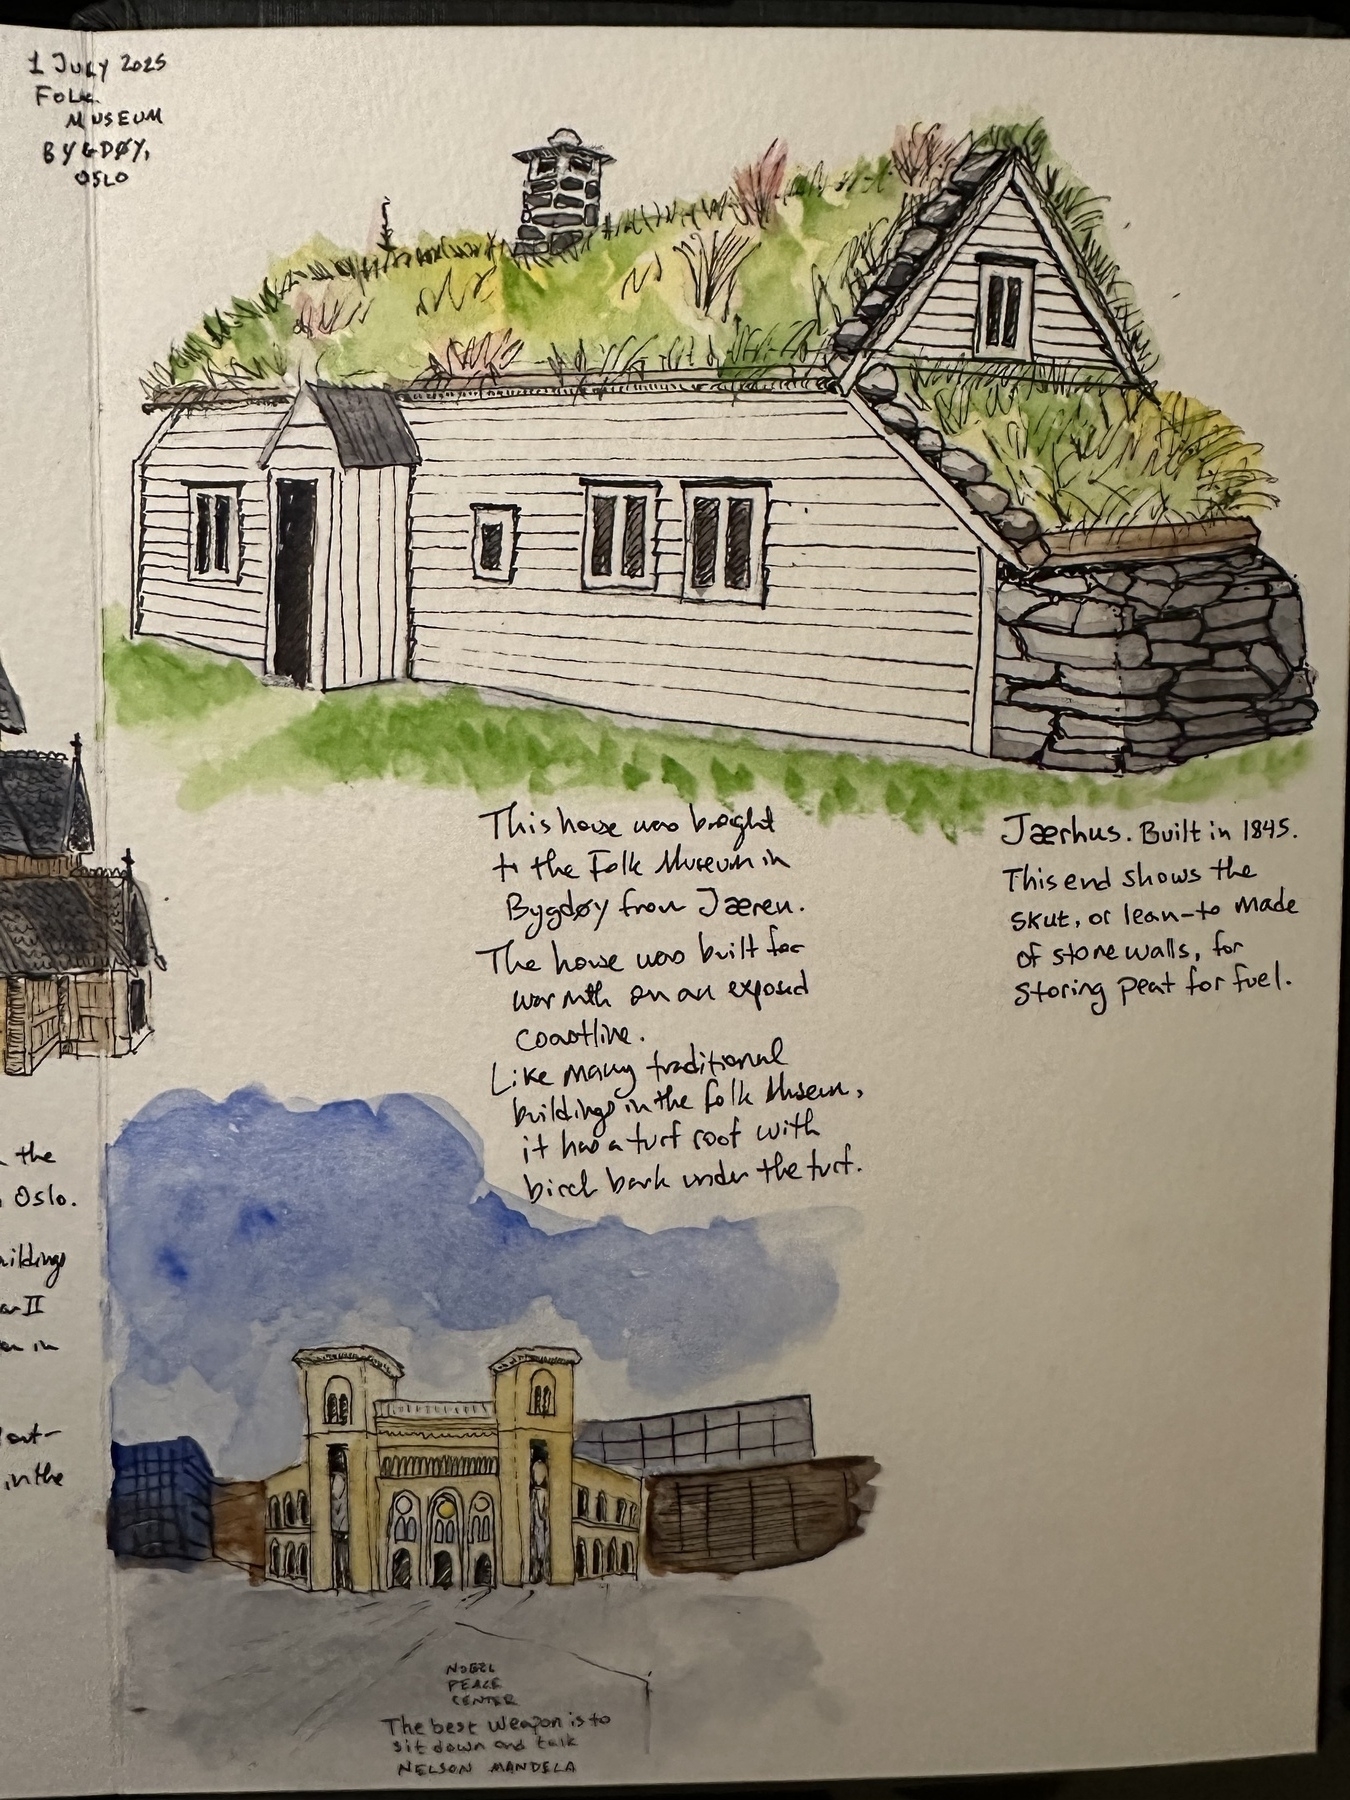 1 July 2025
FOLK
MUSEUM
BYGDØY,
OSLO
This house was brought
to the Folk Museum in
Bygdøy from Jæren.
The house was built for
warmth on an exposed
coastline.
Like many traditional
buildings in the Folk Museum,
it has a turf roof with
birch bark under the turf.
Jærhus. Built in 1845.
This end shows the
skut, or lean-to made
of stone walls, for
storing peat for fuel.
the
Oslo.
II
in
out-
in the
NOBEL
PEACE
CENTER
The best weapon is to
sit down and talk
NELSON MANDELA